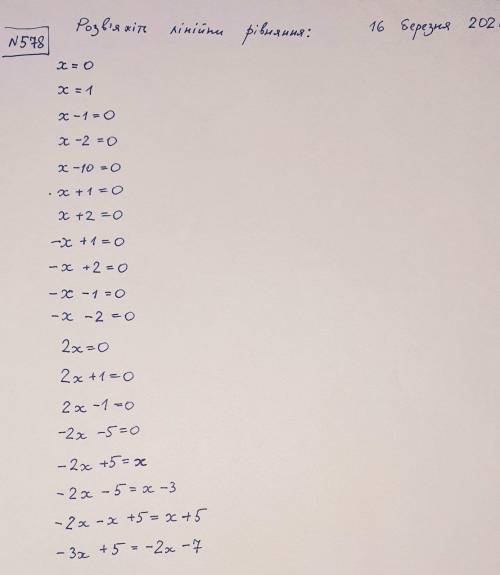 Розв'яжіть лінійни рівняння: 16 березня 202
N578
x = 0
x = 1
x - 1 = 0
x - 2 = 0
x - 10 = 0
x + 1 = 0
x + 2 = 0
-x + 1 = 0
-x + 2 = 0
-x - 1 = 0
-x - 2 = 0
2x = 0
2x + 1 = 0
2x - 1 = 0
-2x - 5 = 0
-2x + 5 = x
-2x - 5 = x - 3
-2x - x + 5 = x + 5
-3x + 5 = -2x - 7